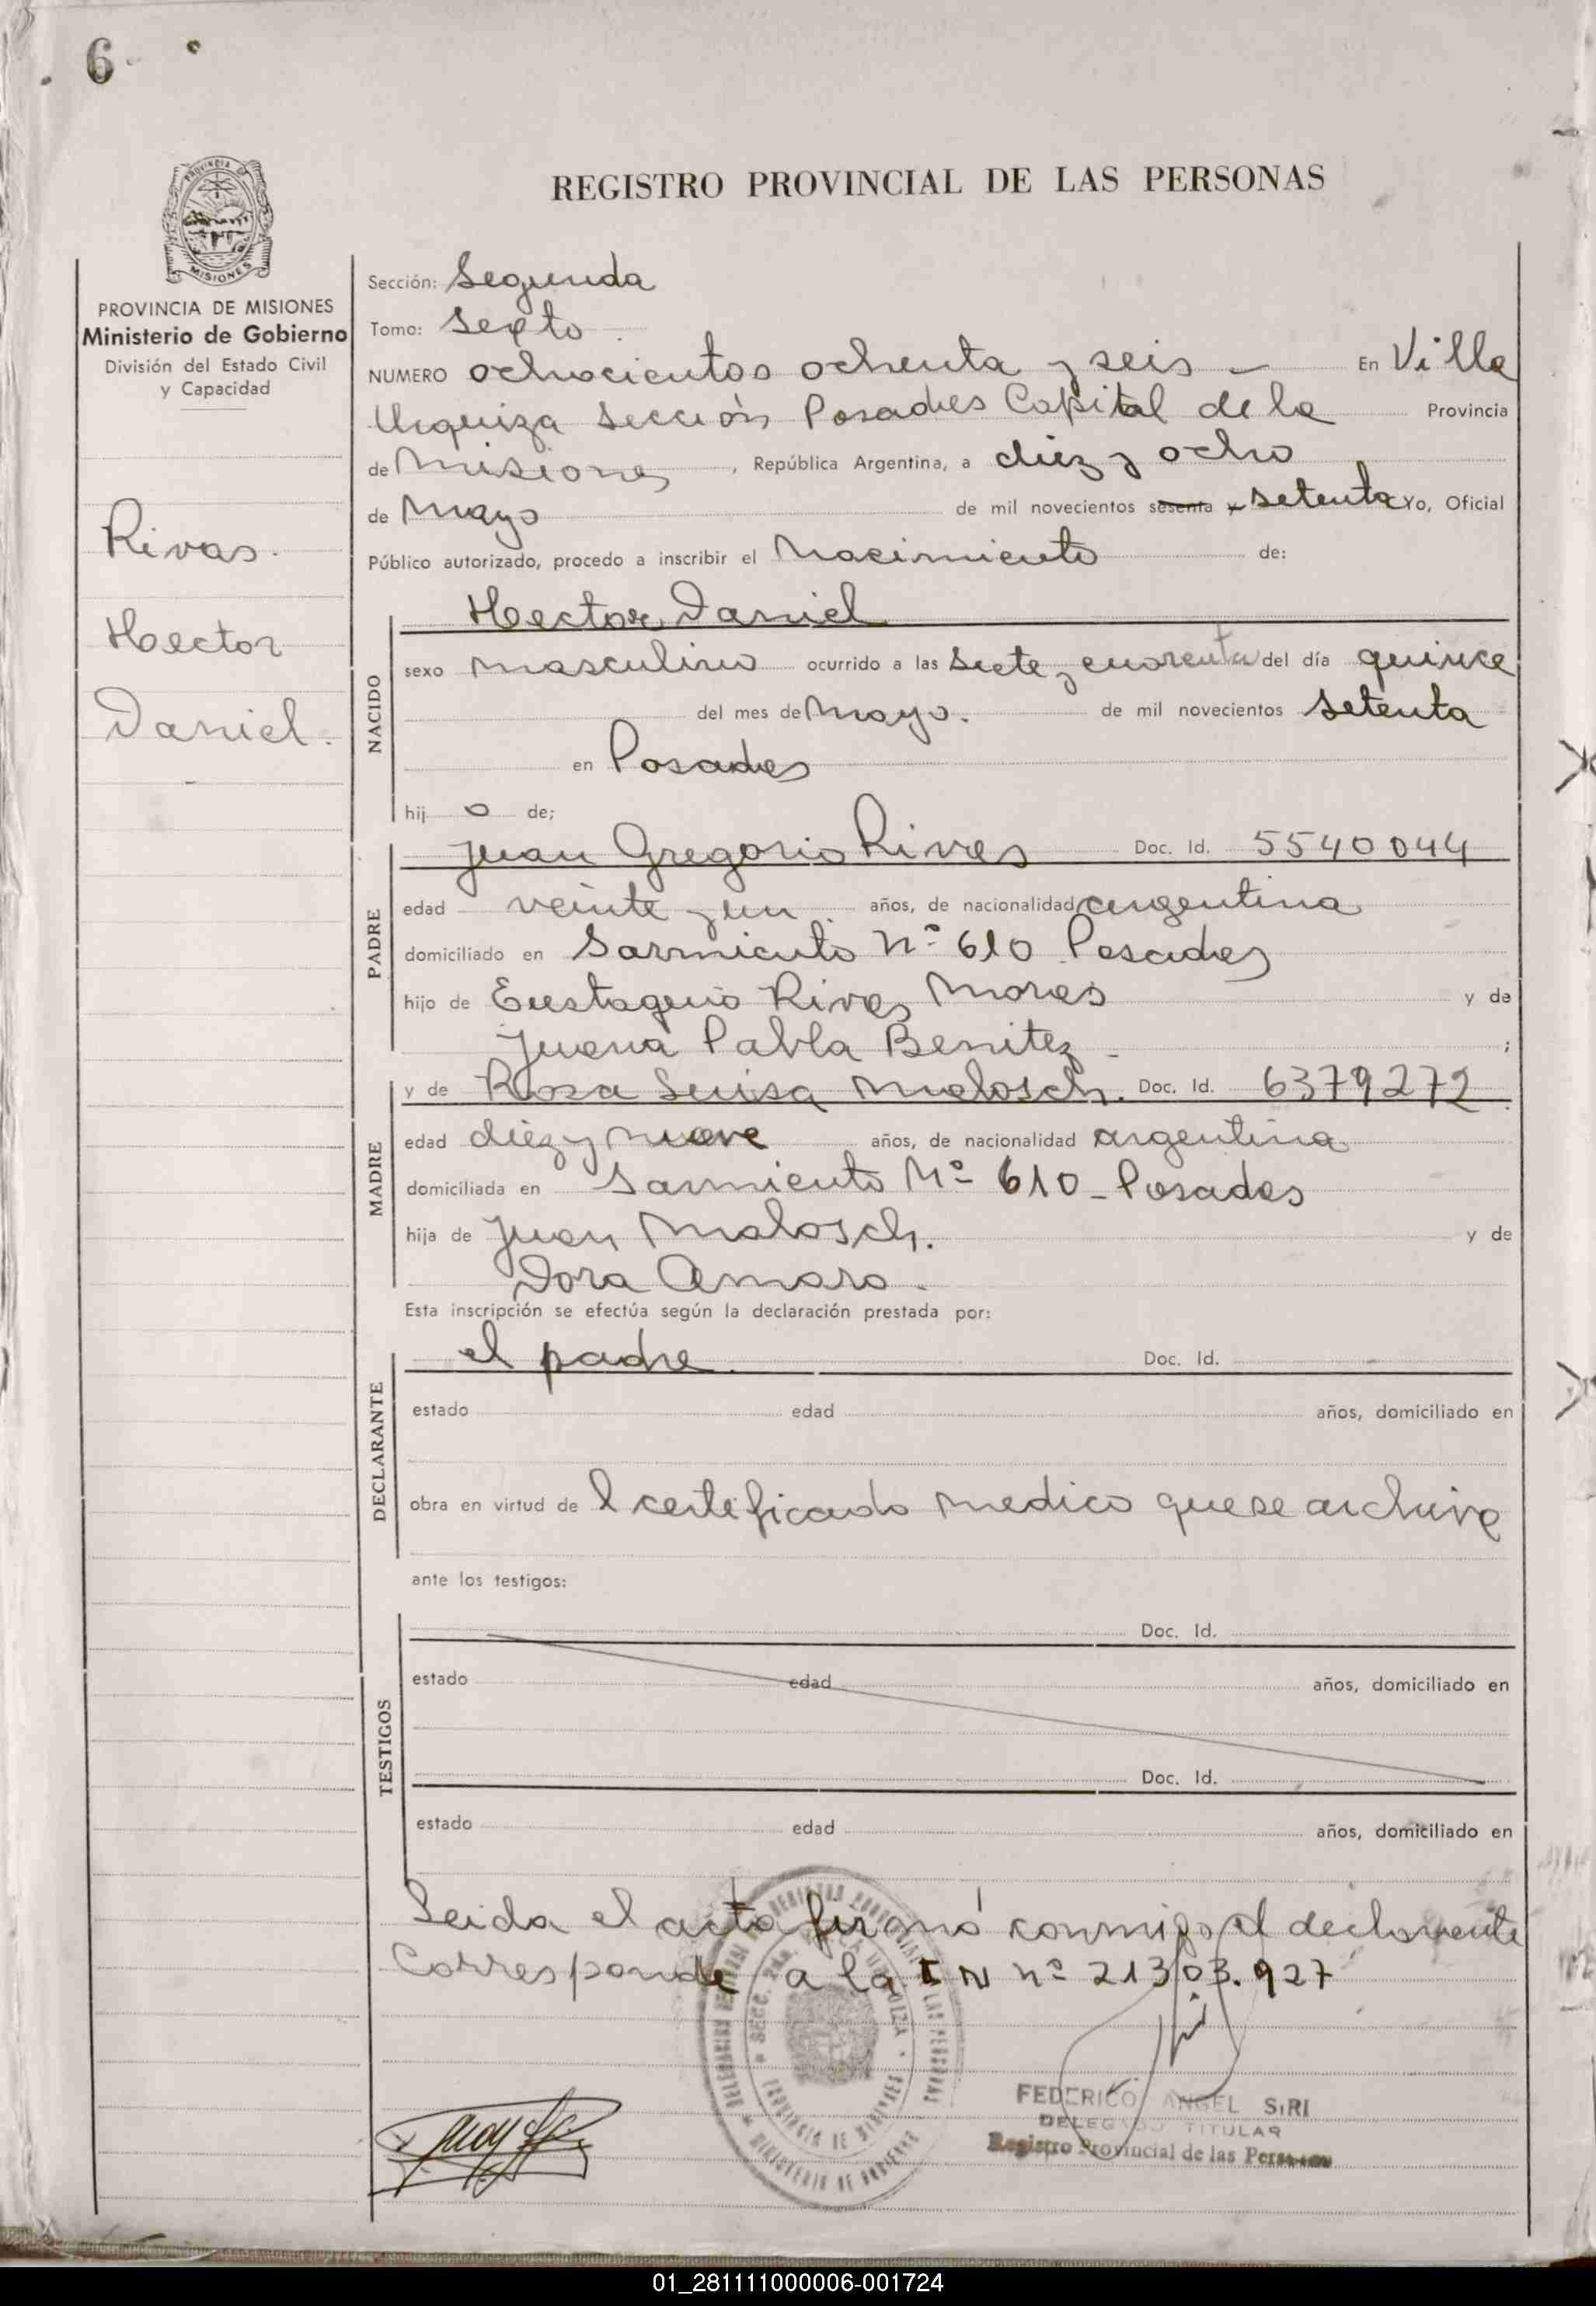 6
REGISTRO PROVINCIAL DE LAS PERSONAS
PROVINCIA DE
MISIONES
PROVINCIA DE MISIONES
Ministerio de Gobierno
División del Estado Civil
y Capacidad
Rivas.
Hector
Daniel.
Sección: Segunda
Tomo: Sexto
NUMERO ochocientos ochenta y seis - En Villa
Urquiza Sección Posadas Capital de la Provincia
de Misiones, República Argentina, a diez y ocho
de Mayo de mil novecientos sesenta y setenta Yo, Oficial
Público autorizado, procedo a inscribir el Nacimiento de:
NACIDO
Hector Daniel
sexo masculino ocurrido a las siete y cuarenta del día quince
del mes de Mayo. de mil novecientos setenta
en Posadas
hij o de;
PADRE
Juan Gregorio Rivas Doc. Id. 5540044
edad veinte y un años, de nacionalidad argentina
domiciliado en Sarmiento Nº 610 Posadas
hijo de Eustaquio Rivas Mores y de
Juana Pabla Benitez - ;
MADRE
y de Rosa Luisa Malosch. Doc. Id. 6379272
edad diez y nueve años, de nacionalidad argentina
domiciliada en Sarmiento Nº 610 - Posadas
hija de Juan Malosch. y de
Dora Amaro.
Esta inscripción se efectúa según la declaración prestada por:
DECLARANTE
el padre. Doc. Id.
estado edad años, domiciliado en
obra en virtud de l certificado medico que se archiva
ante los testigos:
TESTIGOS
Doc. Id.
estado edad años, domiciliado en
Doc. Id.
estado edad años, domiciliado en
Leida el acta firmó conmigo el declarante
Corresponde a la I N nº 21303.927
FEDERICO ANGEL SIRI
DELEGADO TITULAR
Registro Provincial de las Personas
01_281111000006-001724